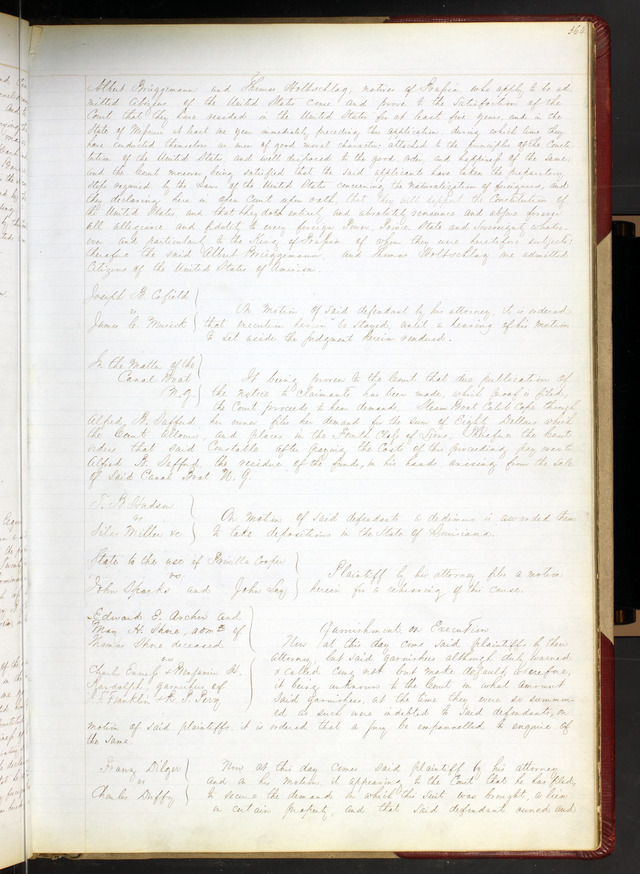 364
Albert Brüggemann and Thomas Holtschlag, natives of Prussia who apply to be ad-
mitted citizens of the United States come and prove to the satisfaction of the
Court that they have resided in the United States for at least five years, and in the
State of Missouri at least one year immediately preceding this application, during which time they
have conducted themselves as men of good moral character, attached to the principles of the Consti-
tution of the United States, and well disposed to the good order, and happiness of the same;
and the Court moreover being satisfied that the said applicants have taken the preparatory
steps required by the Laws of the United States concerning the naturalization of foreigners, and
they declaring here in open Court upon oath, that they will support the Constitution of
the United States, and that they doth entirely and absolutely renounce and abjure forever
all allegiance and fidelity to every foreign Power, Prince State and Sovereignty whatso-
ever and particularly to the King of Prussia of whom they were heretofore subjects;
therefore the said Albert Brüggemann, and Thomas Holtschlag are admitted
Citizens of the United States of America.
Joseph B. Cofield
vs
James C. Musick
On Motion of said defendant by his attorney, it is ordered
that execution herein be stayed, until a hearing of his motion
to set aside the judgment herein rendered.
In the Matter of the
Canal Boat
N. G.
It being proven to the Court that due publication of
the notice to Claimants has been made, which proof is filed,
the Court proceeds to hear demands. Steam Boat Caleb Cope through
Alfred B. Safford, her owner files her demand for the sum of Eighty Dollars which
the Court allows, and places in the Fourth Class of Liens. Therefore the Court
orders that said Constable after paying the Costs of this proceeding pay over to
Alfred B. Safford, the residue of the funds, in his hands arising from the sale
of said Canal Boat N. G.
T. B. Hudson
vs
Silas Miller &c
On motion of said defendants a dedimus is awarded them
to take depositions in the State of Louisiana.
State to the use of Permilla Cooper
vs
John Sparks and John Say
Plaintiff by his attorney files a motion
herein for a rehearing of this cause.
Edward E. Archer and
May H. Shore, adm'rs of
Thomas Shore deceased
vs
Charles Enneis & Benjamin H.
Randolph, garnishees of
Franklin & H. S. Levy
Garnishment on Execution
Now at this day come said plaintiffs by their
attorney, but said garnishees although duly warned
& called come not but made default; wherefore,
it being unknown to the Court in what amount
said garnishees, at the time they were so summon-
ed as such were indebted to said defendants, on
motion of said plaintiffs it is ordered that a jury be empannelled to enquire of
the same.
Franz Dilger
vs
Charles Duffy
Now at this day comes said plaintiff by his attorney
and on his motion it appearing to the Court that he has filed,
to secure the demand on which this suit was brought, a lien
on certain property, and that said defendant owned and